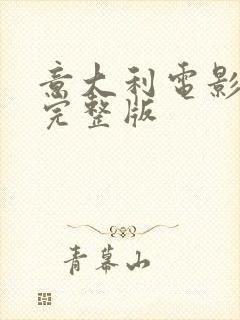 意大利電影
完整版
青幕山